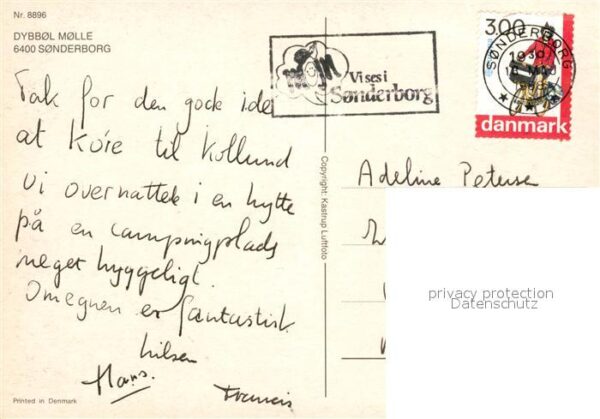 Nr. 8896
DYBBØL MØLLE
6400 SØNDERBORG
Tak for den gode ide
at køre til Kollund
Vi overnatter i en hytte
på en campingplads
meget hyggeligt.
Omegnen er fantastisk
hilsen
Hans. Francis
Printed in Denmark
Copyright: Kastrup Luftfoto
Vi ses i
Sønderborg
3.00
SØNDERBORG
danmark
Adeline Petersen
privacy protection
Datenschutz